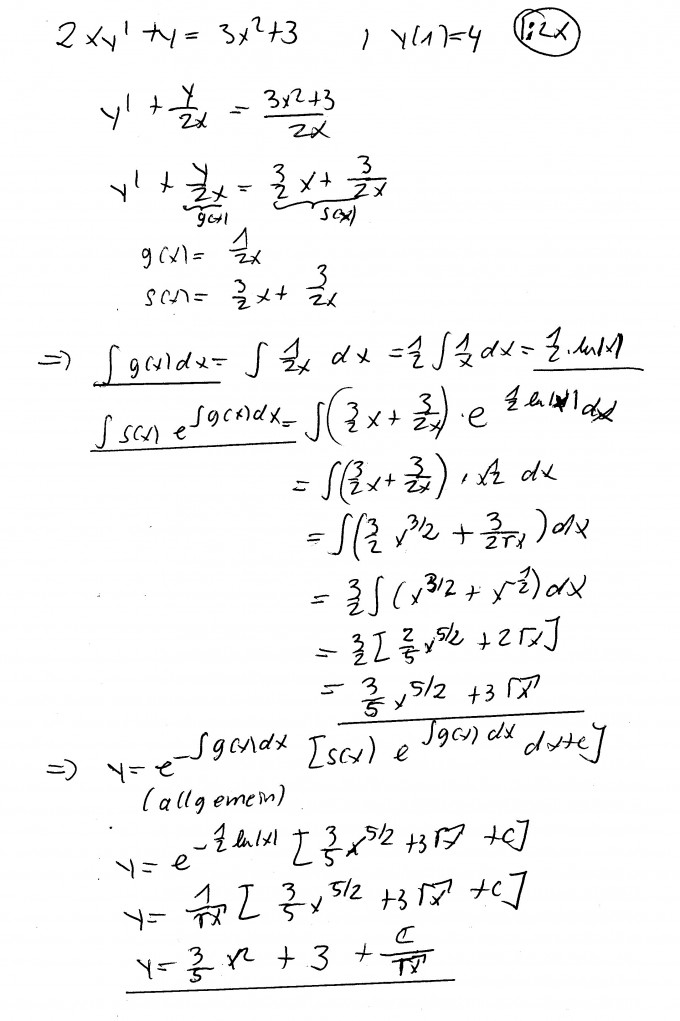 2xy' + y = 3x²+3 ; y(1)=4 |:2x
y' + y/2x = (3x²+3)/2x
y' + y/2x = 3/2 x + 3/2x
g(x) s(x)
g(x) = 1/2x
s(x) = 3/2 x + 3/2x
=> ∫g(x)dx = ∫ 1/2x dx = 1/2 ∫ 1/x dx = 1/2 · ln|x|
∫ s(x) e^∫g(x)dx = ∫(3/2 x + 3/2x) · e^(1/2 ln|x|) dx
= ∫(3/2 x + 3/2x) · x^(1/2) dx
= ∫(3/2 x^(3/2) + 3/(2√x)) dx
= 3/2 ∫ (x^(3/2) + x^(-1/2)) dx
= 3/2 [2/5 x^(5/2) + 2√x]
= 3/5 x^(5/2) + 3√x
=> y = e^(-∫g(x)dx) [s(x) e^(∫g(x)dx) dx+c]
(allgemein)
y = e^(-1/2 ln|x|) [3/5 x^(5/2) + 3√x + c]
y = 1/√x [3/5 x^(5/2) + 3√x + c]
y = 3/5 x² + 3 + c/√x